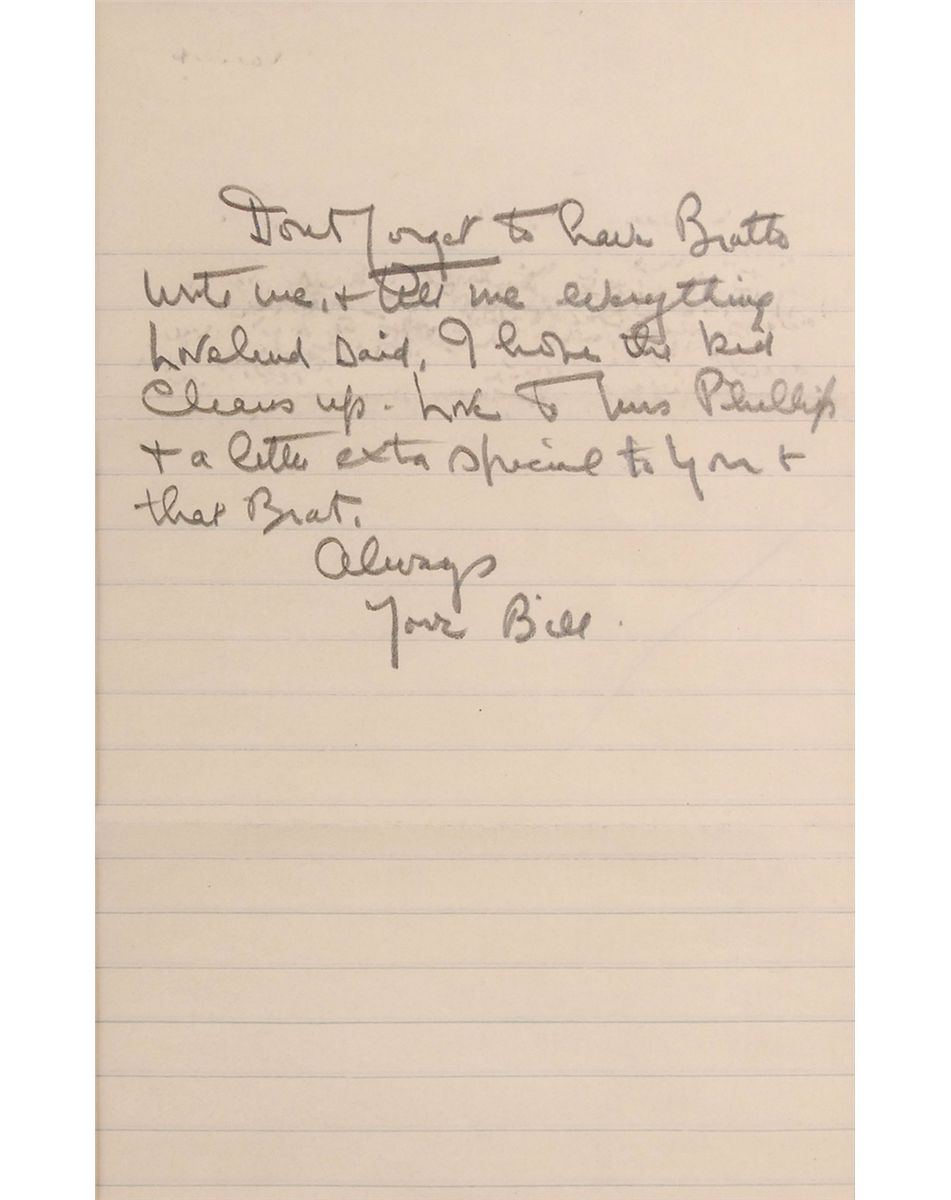 Dont forget to have Bratto
write me, & tell me everything
Loveland said, I hope the kid
Cleans up - Love to Mrs Phillips
& a little extra special to you &
that Brat.
Always
Your Bill.